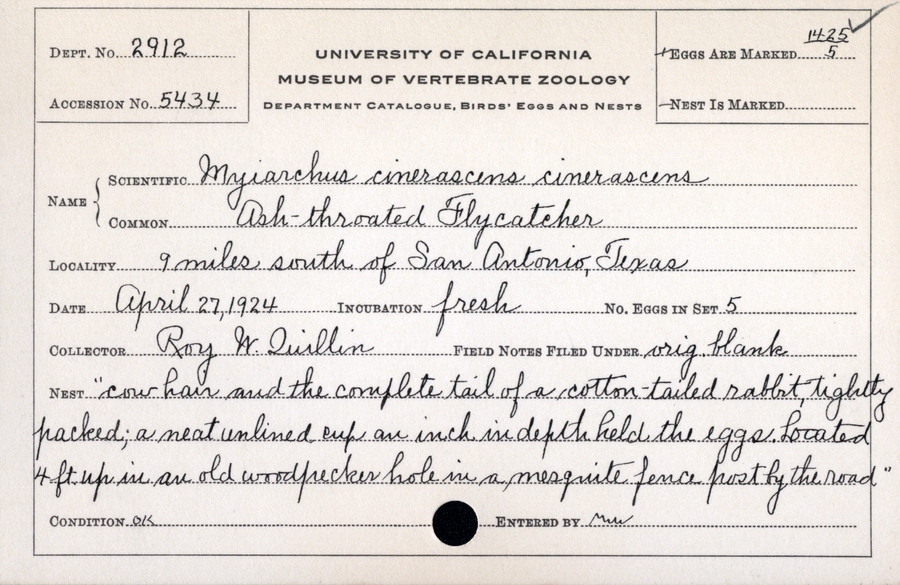 DEPT. No. 2912
ACCESSION No. 5434
UNIVERSITY OF CALIFORNIA
MUSEUM OF VERTEBRATE ZOOLOGY
DEPARTMENT CATALOGUE, BIRDS' EGGS AND NESTS
EGGS ARE MARKED 1425/5
NEST IS MARKED
NAME
SCIENTIFIC Myiarchus cinerascens cinerascens
COMMON Ash-throated Flycatcher
LOCALITY 9 miles south of San Antonio, Texas
DATE April 27, 1924 INCUBATION fresh No. EGGS IN SET 5
COLLECTOR Roy W. Quillin FIELD NOTES FILED UNDER orig. blank
NEST "cow hair and the complete tail of a cotton-tailed rabbit, tightly
packed; a neat unlined cup an inch in depth held the eggs. Located
4 ft up in an old woodpecker hole in a mesquite fence post by the road"
CONDITION OK ENTERED BY